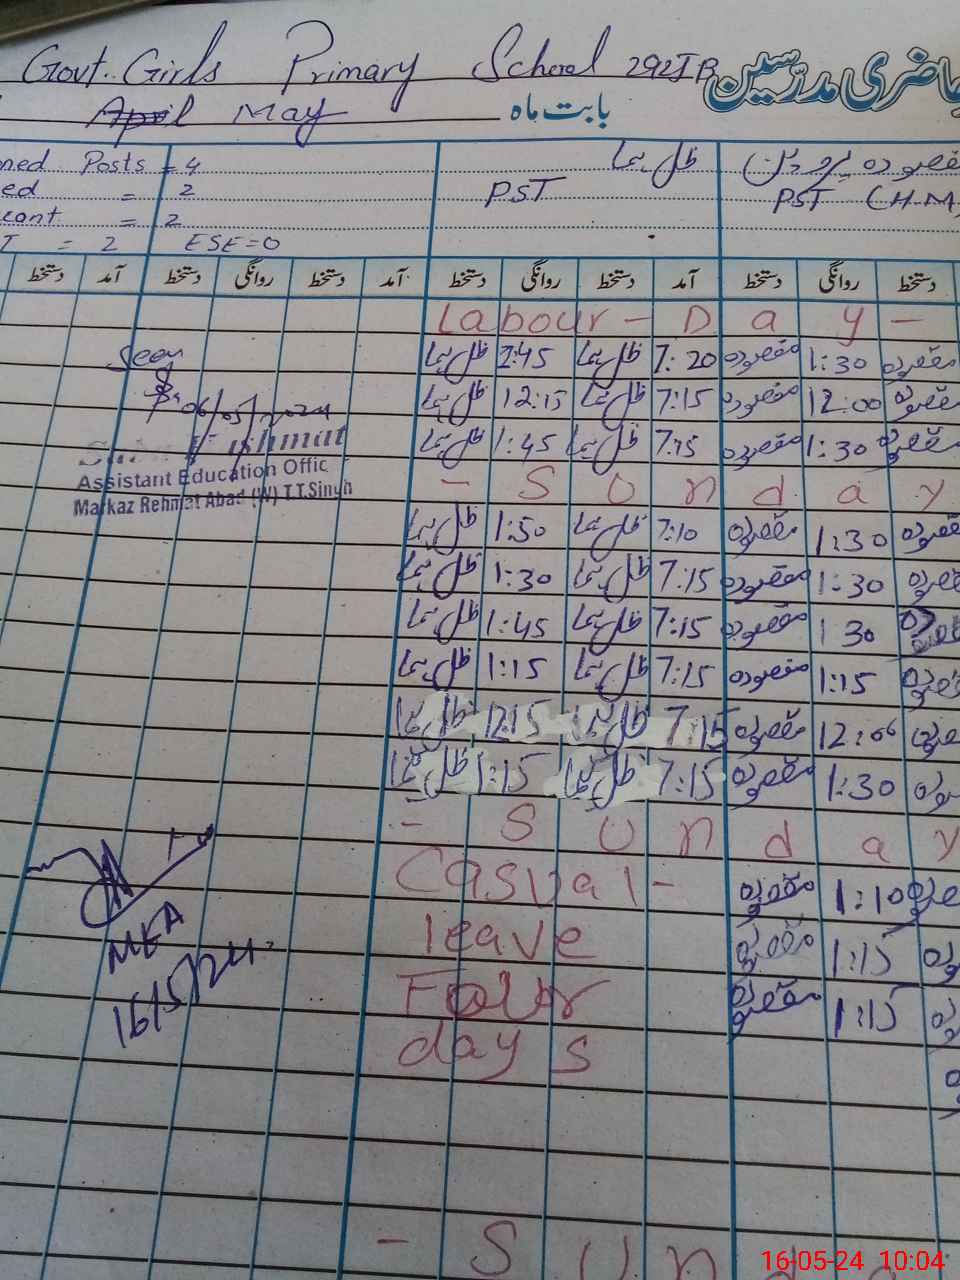 Govt. Girls Primary School 292JB
حاضری مدرسین
April May بابت ماہ
ned Posts = 4
ed = 2
cant = 2
T = 2 ESE=0
ظل ہما
PST
PST (H.M)
دستخط آمد دستخط روانگی دستخط آمد دستخط روانگی دستخط آمد دستخط روانگی دستخط
Labour - Day -
Seen
ظل ہما ظل ہما 7:20 مقصودہ 1:30 مقصودہ
06/05/2024
ظل ہما 12:15 ظل ہما 7:15 مقصودہ 12:00 مقصودہ
ظل ہما 1:45 ظل ہما 7:15 مقصودہ 1:30 مقصودہ
Assistant Education Offic
Markaz Rehmat Abad (W) T.T.Singh
- Sunday
ظل ہما 1:50 ظل ہما 7:10 مقصودہ 1:30 مقصودہ
ظل ہما 1:30 ظل ہما 7:15 مقصودہ 1:30 مقصودہ
ظل ہما 1:45 ظل ہما 7:15 مقصودہ 1 30
ظل ہما 1:15 ظل ہما 7:15 مقصودہ 1:15 مقصودہ
ظل ہما 12:15 ظل ہما 7:15 مقصودہ 12:00 مقصودہ
ظل ہما 1:15 ظل ہما 7:15 مقصودہ 1:30 مقصودہ
- Sunday
Casual - مقصودہ 1:10 مقصودہ
leave مقصودہ 1:15
Four مقصودہ 1:15
days
MEA
16/5/24
- Sund
16-05-24 10:04